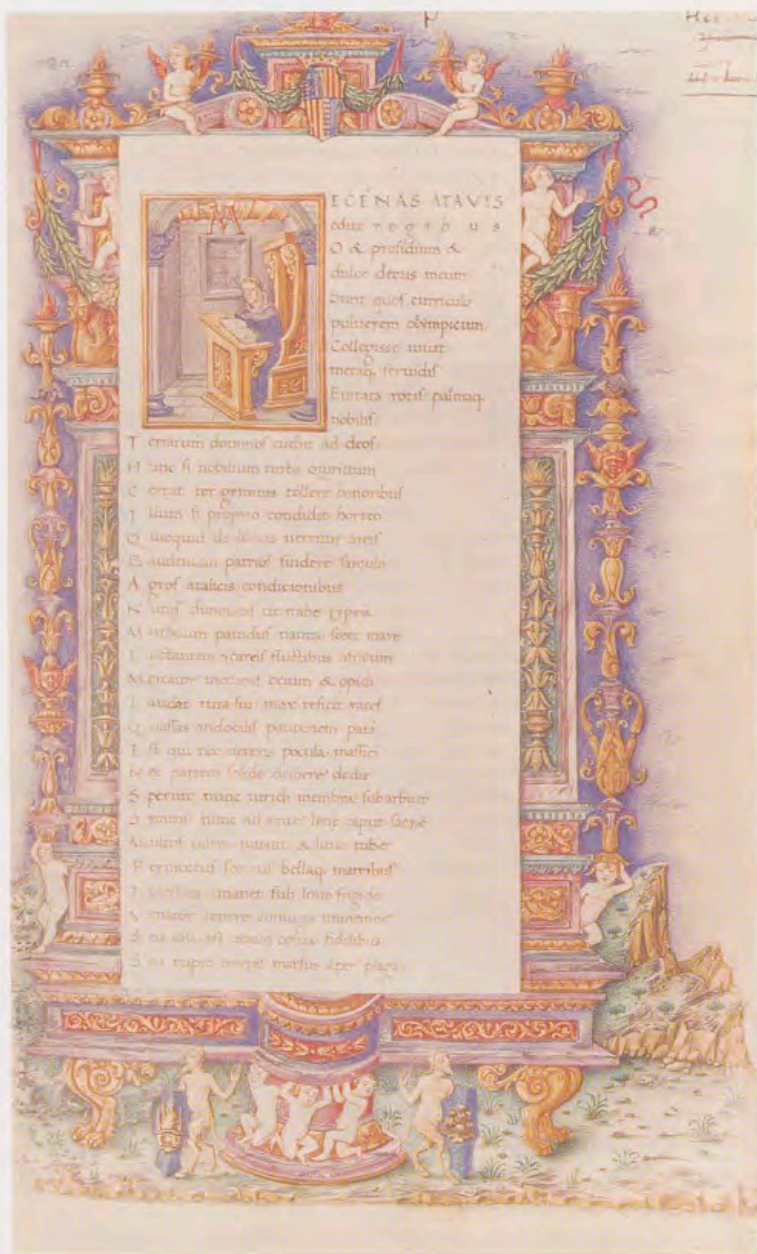 ECENAS ATAVIS
edite regibus
O & presidium &
dulce decus meum
Sunt quos curriculo
pulverem olympicum
Collegisse iuvat
metaq. fervidis
Evitata rotis palmaq.
nobilis
Terrarum dominos evehit ad deos
Hunc si nobilium turba quiritum
Certat ter geminis tollere honoribus
Illum si proprio condidit horreo
Quicquid de libicis verritur areis
Gaudentem patrios findere sarculo
Agros atalicis condicionibus
Nunquam dimoveas ut trabe cypria
Myrtoum pavidus nauta secet mare
Luctantem icareis fluctibus africum
Mercator metuens ocium & opidi
Laudat rura sui mox reficit rates
Quassas indocilis pauperiem pati
Est qui nec veteris pocula massici
Nec partem solido demere de die
Spernit nunc viridi membra sub arbuto
Stratus nunc ad aque lene caput sacre
Multos castra iuvant & lituo tube
Permixtus sonitus bellaq. matribus
Detestata manet sub Iove frigido
Venator tenere coniugis immemor
Seu visa est catulis cerva fidelibus
Seu rupit teretes marsus aper plagas